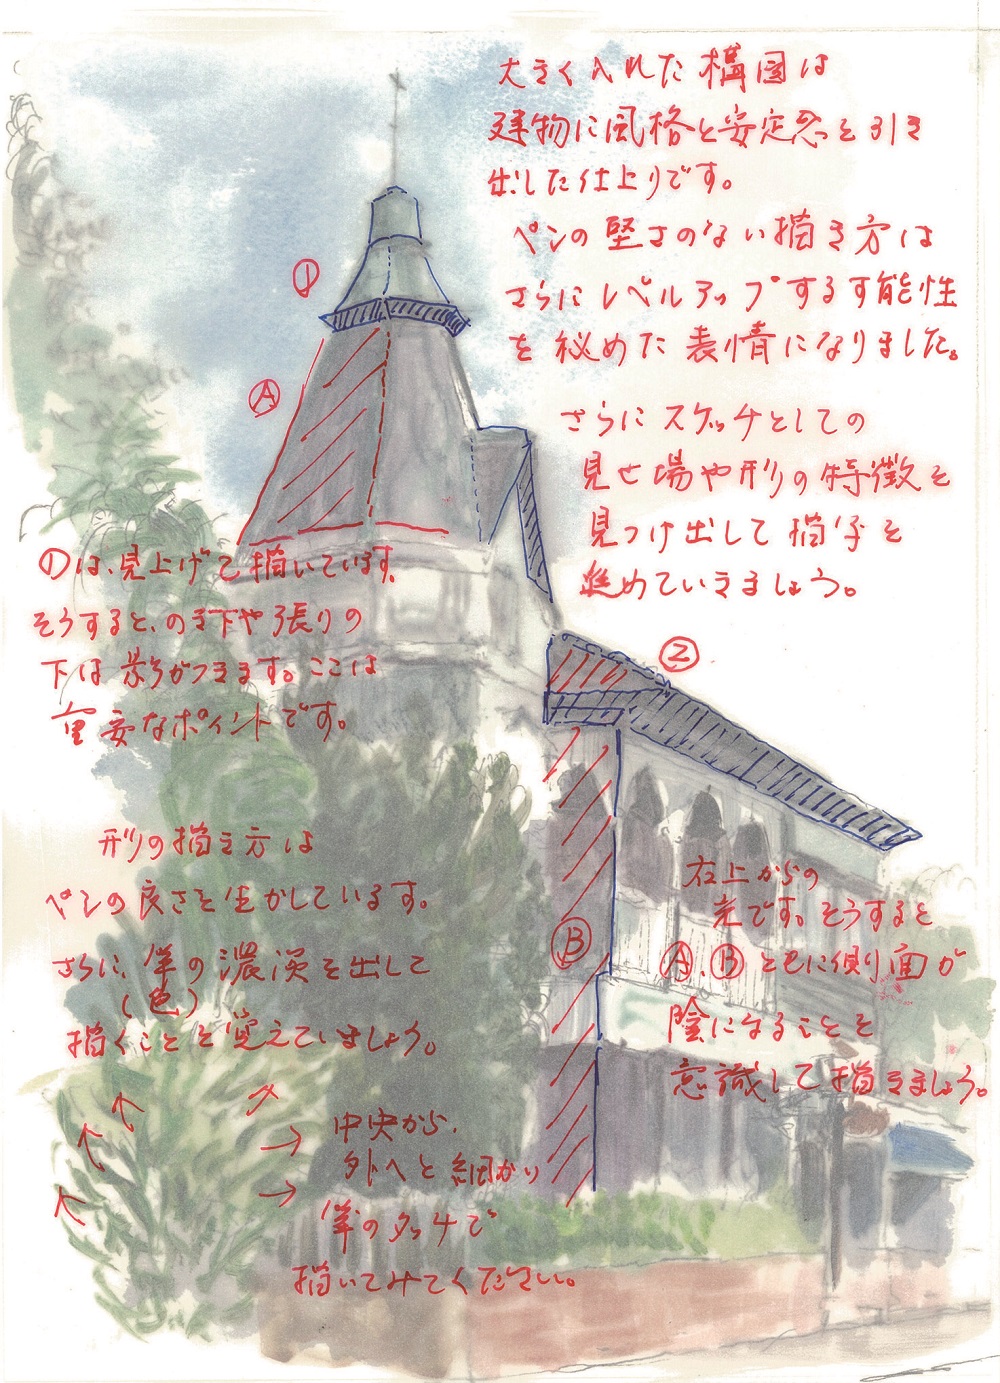 大きく入れた構図は
建物に風格と安定感を引き
出した仕上りです。
ペンの堅さのない描き方は
さらにレベルアップする可能性
を秘めた表情になりました。
さらにスケッチとしての
見せ場や形の特徴を
見つけ出して描写を
進めていきましょう。
①
Ⓐ
①は、見上げて描いています。
そうすると、のき下や張りの
下は影がつきます。ここは
重要なポイントです。
②
形の描き方は
ペンの良さを生かしています。
さらに、筆の濃淡を出して
(色)
描くことを覚えていきましょう。
Ⓑ
右上からの
光です。そうすると
Ⓐ、Ⓑともに側面が
陰になることを
意識して描きましょう。
中央から、
外へと細かい
筆のタッチで
描いてみてください。